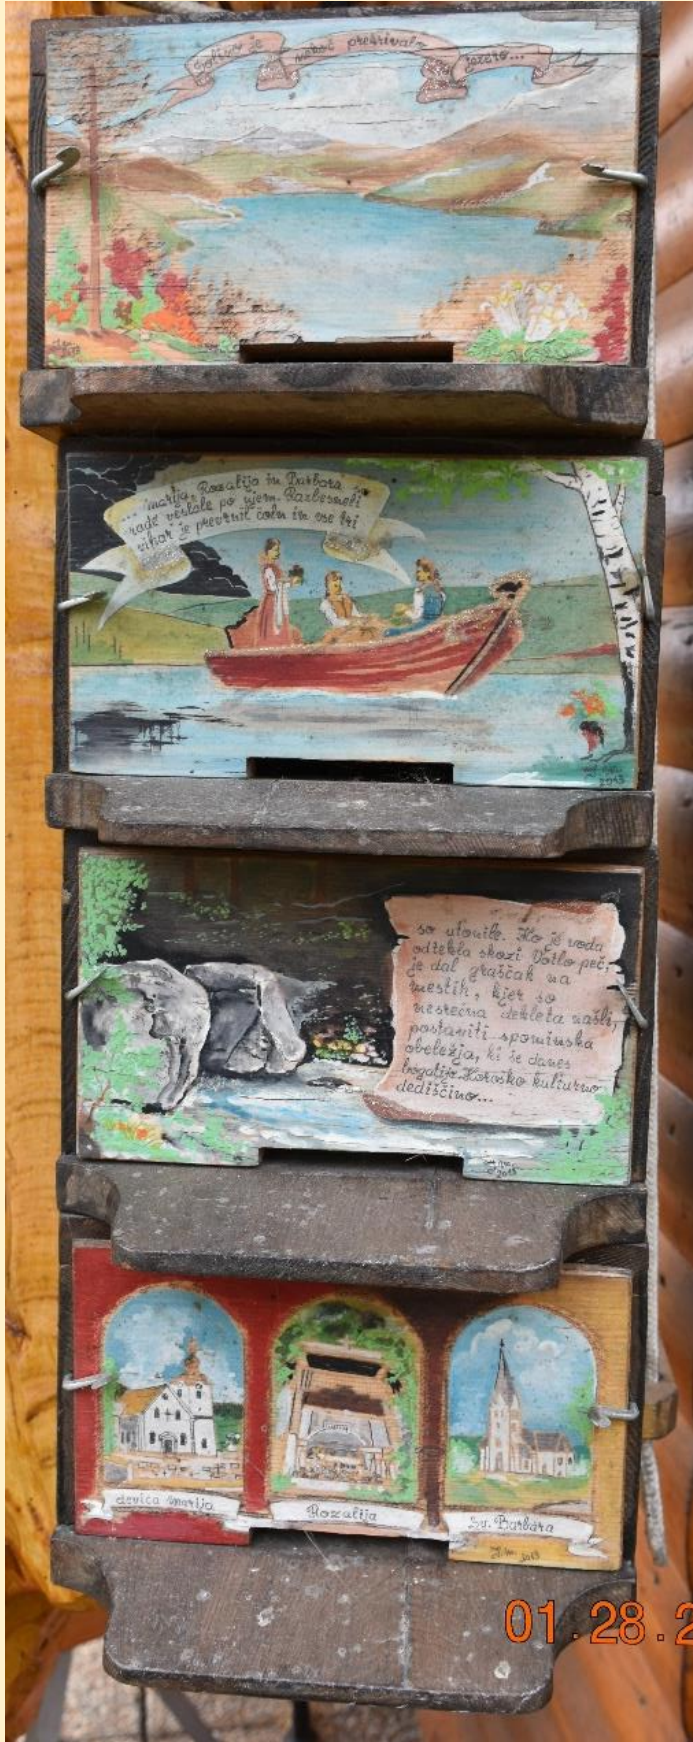 Dolino je nekoč prekrivalo jezero...
...marija, Rozalija in Barbara so
rade veslale po njem. Razbesneli
vihar je prevrnil čoln in vse tri
2013
so utonile. Ko je voda
odtekla skozi Votlo peč,
je dal graščak na
mestih, kjer so
nesrečna dekleta našli,
postaviti spominska
obeležja, ki še danes
bogatijo Koroško kulturno
dediščino...
2013
devica marija
Rozalija
Sv. Barbara
2013
01.28.2